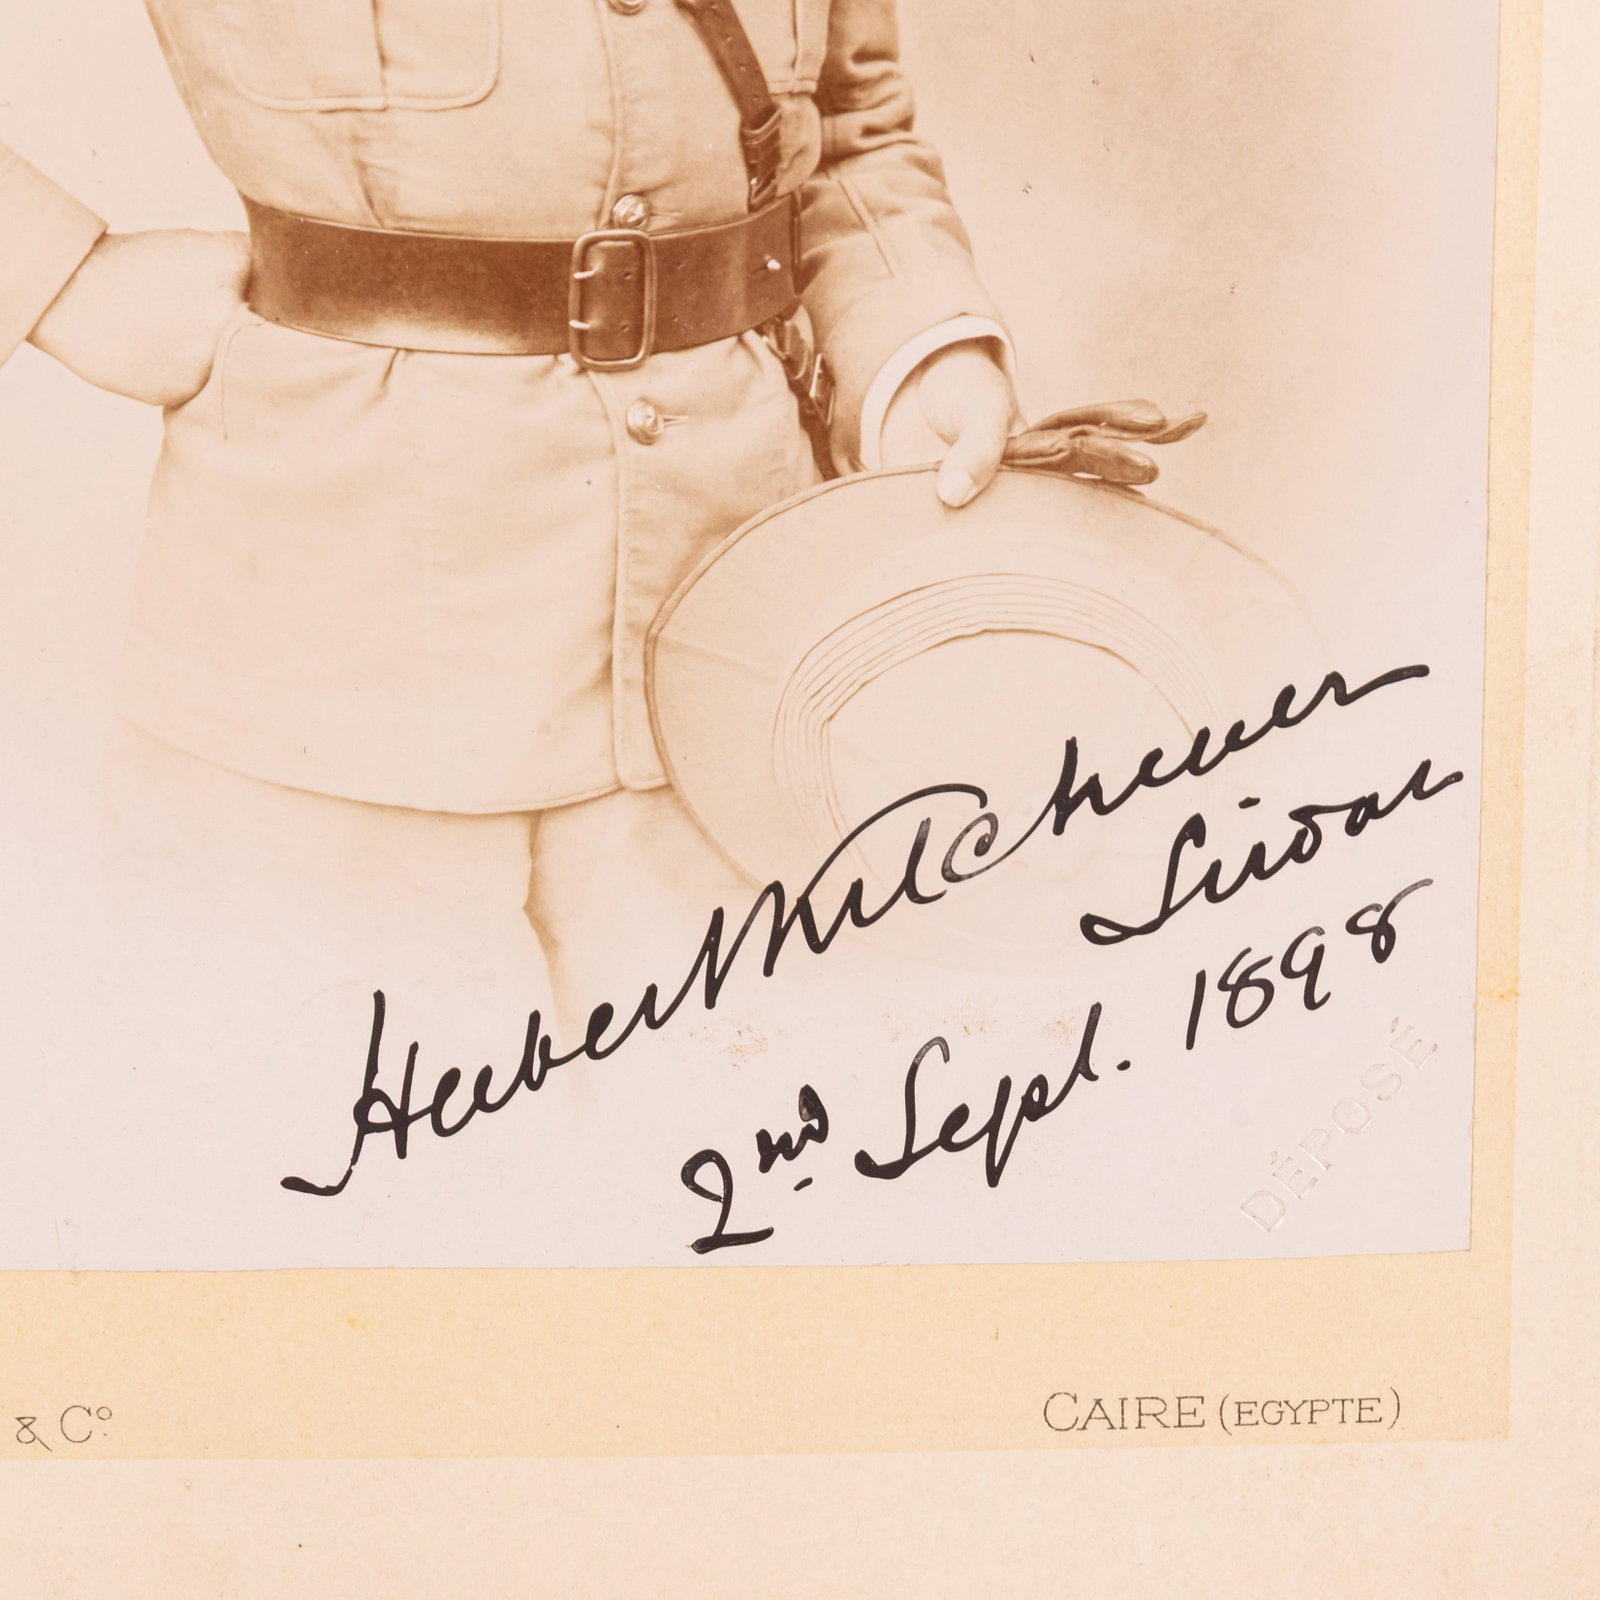 Herbert Kitchener
Sirdar
2nd Sept. 1898
DÉPOSÉ
& Co.
CAIRE (EGYPTE)